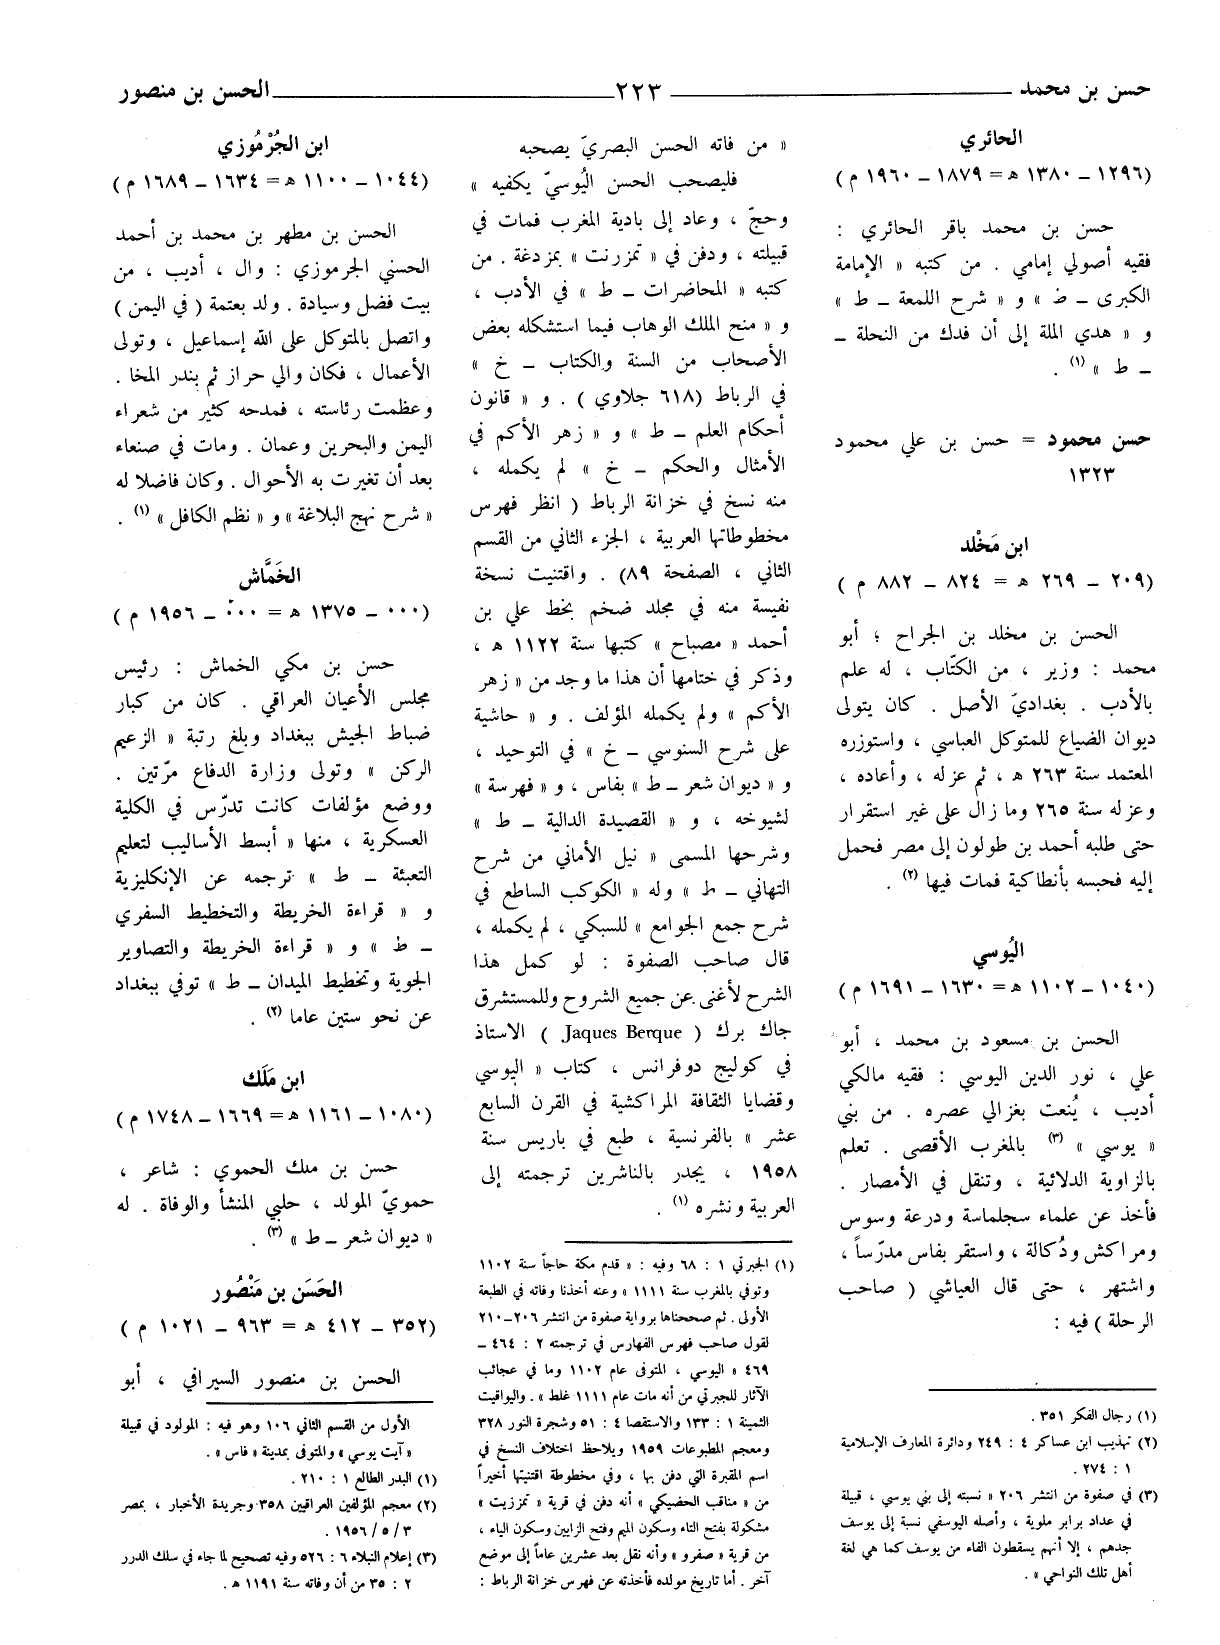 حسن بن محمد ـــــــ ٢٢٣ ـــــــ الحسن بن منصور
الحائري
(١٢٩٦ ــ ١٣٨٠ ه‍ = ١٨٧٩ ــ ١٩٦٠ م)
حسن بن محمد باقر الحائري :
فقيه أصولي إمامي . من كتبه « الإمامة
الكبرى ــ ط » و « شرح اللمعة ــ ط »
و « هدي الملة إلى أن فدك من النحلة ــ
ــ ط » (١) .
حسن محمود = حسن بن علي محمود
١٣٢٣
ابن مَخْلد
(٢٠٩ ــ ٢٦٩ ه‍ = ٨٢٤ ــ ٨٨٢ م)
الحسن بن مخلد بن الجراح ؛ أبو
محمد : وزير ، من الكتّاب ، له علم
بالأدب . بغداديّ الأصل . كان يتولى
ديوان الضياع للمتوكل العباسي ، واستوزره
المعتمد سنة ٢٦٣ ه‍ ، ثم عزله ، وأعاده ،
وعزله سنة ٢٦٥ وما زال على غير استقرار
حتى طلبه أحمد بن طولون إلى مصر فحمل
إليه فحبسه بأنطاكية فمات فيها (٢) .
اليُوسي
(١٠٤٠ ــ ١١٠٢ ه‍ = ١٦٣٠ ــ ١٦٩١ م)
الحسن بن مسعود بن محمد ، أبو
علي ، نور الدين اليوسي : فقيه مالكي
أديب ، يُنعت بغزالي عصره . من بني
« يوسي » (٣) بالمغرب الأقصى . تعلم
بالزاوية الدلائية ، وتنقل في الأمصار .
فأخذ عن علماء سجلماسة ودرعة وسوس
ومراكش ودُكالة ، واستقر بفاس مدرّساً ،
واشتهر ، حتى قال العياشي ( صاحب
الرحلة ) فيه :
(١) رجال الفكر ٣٥١ .
(٢) تهذيب ابن عساكر ٤ : ٢٤٩ ودائرة المعارف الإسلامية
١ : ٢٧٤ .
(٣) في صفوة من انتشر ٢٠٦ « نسبته إلى بني يوسي ، قبيلة
في عداد برابر ملوية ، وأصله اليوسفي نسبة إلى يوسف
جدهم ، إلا أنهم يسقطون الفاء من يوسف كما هي لغة
أهل تلك النواحي » .
« من فاته الحسن البصريّ يصحبه
فليصحب الحسن اليُوسيّ يكفيه »
وحجّ ، وعاد إلى بادية المغرب فمات في
قبيلته ، ودفن في « تمزرنت » بمزدغة . من
كتبه « المحاضرات ــ ط » في الأدب ،
و « منح الملك الوهاب فيما استشكله بعض
الأصحاب من السنة والكتاب ــ خ »
في الرباط (٦١٨ جلاوي ) . و « قانون
أحكام العلم ــ ط » و « زهر الأكم في
الأمثال والحكم ــ خ » لم يكمله ،
منه نسخ في خزانة الرباط ( انظر فهرس
مخطوطاتها العربية ، الجزء الثاني من القسم
الثاني ، الصفحة ٨٩) . واقتنيت نسخة
نفيسة منه في مجلد ضخم بخط علي بن
أحمد « مصباح » كتبها سنة ١١٢٢ ه‍ ،
وذكر في ختامها أن هذا ما وجد من « زهر
الأكم » ولم يكمله المؤلف . و « حاشية
على شرح السنوسي ــ خ » في التوحيد ،
و « ديوان شعر ــ ط » بفاس ، و « فهرسة »
لشيوخه ، و « القصيدة الدالية ــ ط »
وشرحها المسمى « نيل الأماني من شرح
التهاني ــ ط » وله « الكوكب الساطع في
شرح جمع الجوامع » للسبكي ، لم يكمله ،
قال صاحب الصفوة : لو كمل هذا
الشرح لأغنى عن جميع الشروح وللمستشرق
جاك برك ( Jaques Berque ) الاستاذ
في كوليج دوفرانس ، كتاب « اليوسي
وقضايا الثقافة المراكشية في القرن السابع
عشر » بالفرنسية ، طبع في باريس سنة
١٩٥٨ ، يجدر بالناشرين ترجمته إلى
العربية ونشره (١) .
(١) الجبرتي ١ : ٦٨ وفيه : « قدم مكة حاجاً سنة ١١٠٢
وتوفي بالمغرب سنة ١١١١ » وعنه أخذنا وفاته في الطبعة
الأولى . ثم صححناها برواية صفوة من انتشر ٢٠٦ــ٢١٠
لقول صاحب فهرس الفهارس في ترجمته ٢ : ٤٦٤ ــ
٤٦٩ « اليوسي ، المتوفى عام ١١٠٢ وما في عجائب
الآثار للجبرتي من أنه مات عام ١١١١ غلط » . واليواقيت
الثمينة ١ : ١٣٣ والاستقصا ٤ : ٥١ وشجرة النور ٣٢٨
ومعجم المطبوعات ١٩٥٩ ويلاحظ اختلاف النسخ في
اسم المقبرة التي دفن بها ، وفي مخطوطة اقتنيتها أخيراً
من « مناقب الحضيكي » أنه دفن في قرية « تمززيت »
مشكولة بفتح التاء وسكون الميم وفتح الزايين وسكون الياء ،
من قرية « صفرو » وأنه نقل بعد عشرين عاماً إلى موضع
آخر . أما تاريخ مولده فأخذته عن فهرس خزانة الرباط :
ابن الجُرْمُوزي
(١٠٤٤ ــ ١١٠٠ ه‍ = ١٦٣٤ ــ ١٦٨٩ م)
الحسن بن مطهر بن محمد بن أحمد
الحسني الجرموزي : وال ، أديب ، من
بيت فضل وسيادة . ولد بعتمة ( في اليمن )
واتصل بالمتوكل على الله إسماعيل ، وتولى
الأعمال ، فكان والي حراز ثم بندر المخا .
وعظمت رئاسته ، فمدحه كثير من شعراء
اليمن والبحرين وعمان . ومات في صنعاء
بعد أن تغيرت به الأحوال . وكان فاضلا له
« شرح نهج البلاغة » و « نظم الكافل » (١) .
الخَمَّاش
(٠٠٠ ــ ١٣٧٥ ه‍ = ٠٠٠ ــ ١٩٥٦ م)
حسن بن مكي الخماش : رئيس
مجلس الأعيان العراقي . كان من كبار
ضباط الجيش ببغداد وبلغ رتبة « الزعيم
الركن » وتولى وزارة الدفاع مرّتين .
ووضع مؤلفات كانت تدرّس في الكلية
العسكرية ، منها « أبسط الأساليب لتعليم
التعبئة ــ ط » ترجمه عن الإنكليزية
و « قراءة الخريطة والتخطيط السفري
ــ ط » و « قراءة الخريطة والتصاوير
الجوية وتخطيط الميدان ــ ط » توفي ببغداد
عن نحو ستين عاما (٢) .
ابن مَلَك
(١٠٨٠ ــ ١١٦١ ه‍ = ١٦٦٩ ــ ١٧٤٨ م)
حسن بن ملك الحموي : شاعر ،
حمويّ المولد ، حلبي المنشأ والوفاة . له
« ديوان شعر ــ ط » (٣) .
الحَسَن بن مَنْصُور
(٣٥٢ ــ ٤١٢ ه‍ = ٩٦٣ ــ ١٠٢١ م)
الحسن بن منصور السيرافي ، أبو
الأول من القسم الثاني ١٠٦ وهو فيه : المولود في قبيلة
« آيت يوسي » والمتوفى بمدينة « فاس » .
(١) البدر الطالع ١ : ٢١٠ .
(٢) معجم المؤلفين العراقيين ٣٥٨ وجريدة الأخبار ، بمصر
٣ / ٥ / ١٩٥٦ .
(٣) إعلام النبلاء ٦ : ٥٢٦ وفيه تصحيح لما جاء في سلك الدرر
٢ : ٣٥ من أن وفاته سنة ١١٩١ ه‍ .